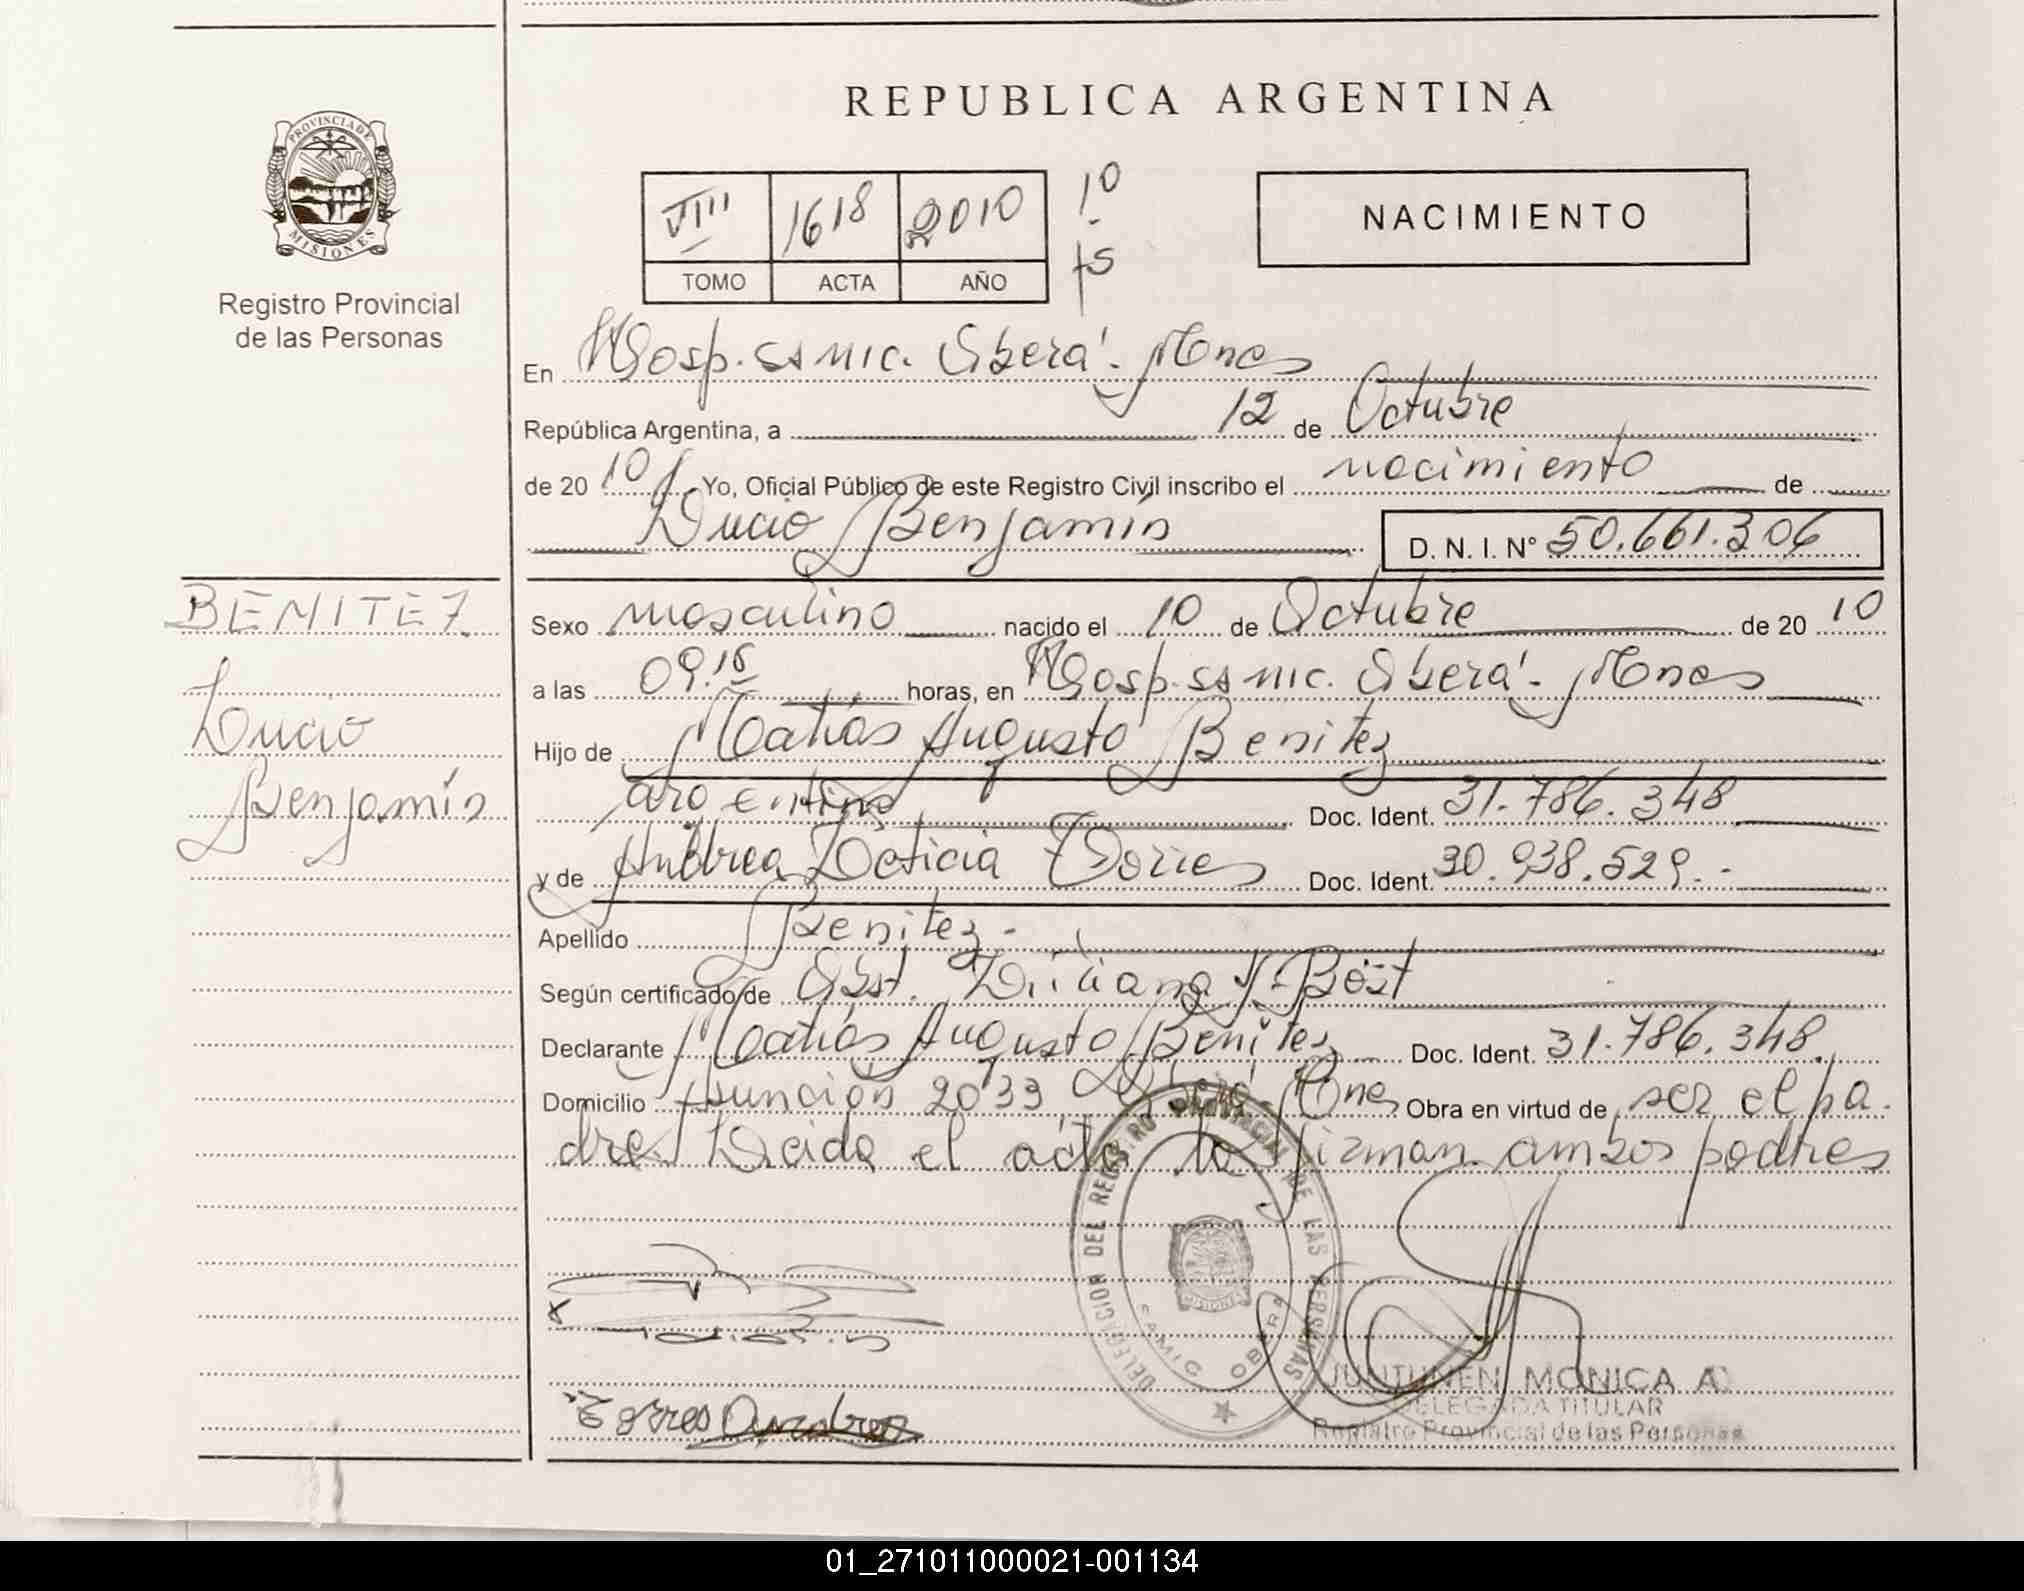 REPUBLICA ARGENTINA
PROVINCIA DE
MISIONES
Registro Provincial
de las Personas
VIII 1618 2010 1º
TOMO ACTA AÑO fs
NACIMIENTO
En Hosp. samic. Oberá - Mnes
República Argentina, a 12 de Octubre
de 20 10 Yo, Oficial Público de este Registro Civil inscribo el nacimiento de
Lucio Benjamín D. N. I. Nº 50.661.306
BENITEZ
Lucio
Benjamín
Sexo masculino nacido el 10 de Octubre de 20 10
a las 09.15 horas, en Hosp. samic. Oberá - Mnes
Hijo de Matías Augusto Benitez
argentino Doc. Ident. 31.786.348
y de Andrea Leticia Torres Doc. Ident. 30.938.529.-
Apellido Benitez.-
Según certificado de Obst. Liliana Böxt
Declarante Matías Augusto Benitez Doc. Ident. 31.786.348.
Domicilio Asunción 2033 Oberá - Mnes Obra en virtud de ser el pa-
dre Leida el acta la firman ambos padres
DELEGACION DEL REGISTRO PROVINCIAL DE LAS PERSONAS
SAMIC OBERA
MISIONES
Torres Andrea
JUNTUNEN MONICA A
DELEGADA TITULAR
Registro Provincial de las Personas
01_271011000021-001134